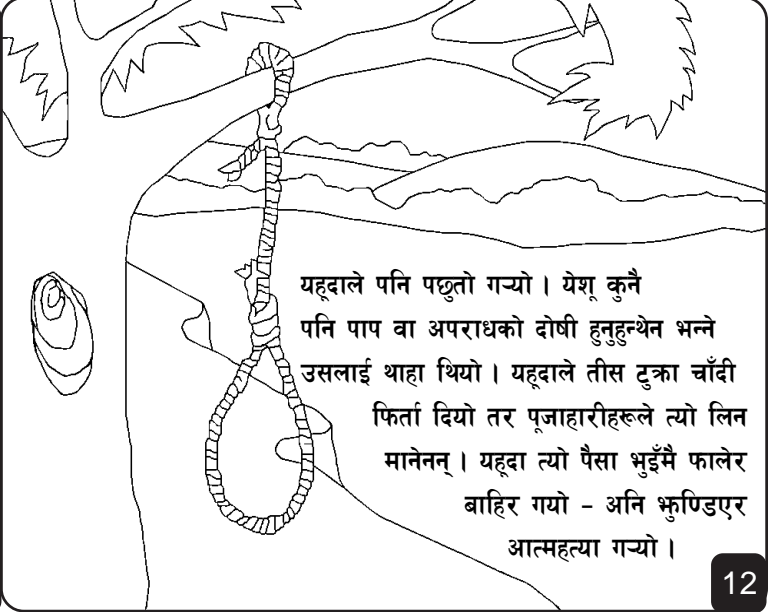 यहूदाले पनि पछुतो गऱ्यो । येशू कुनै
पनि पाप वा अपराधको दोषी हुनुहुन्थेन भन्ने
उसलाई थाहा थियो । यहूदाले तीस टुक्रा चाँदी
फिर्ता दियो तर पूजाहारीहरूले त्यो लिन
मानेनन् । यहूदा त्यो पैसा भुइँमै फालेर
बाहिर गयो - अनि झुण्डिएर
आत्महत्या गऱ्यो ।
12